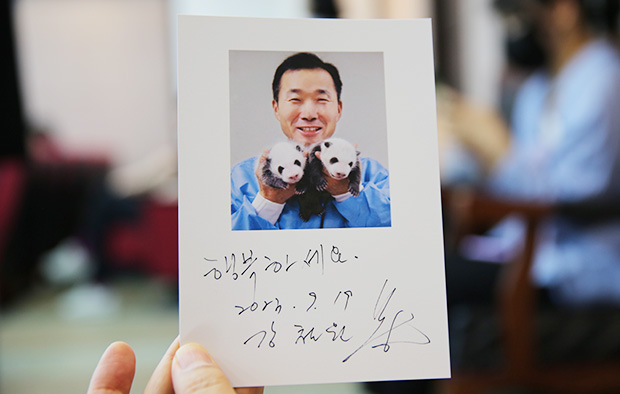 행복하세요.
2023. 9. 19
강 철원